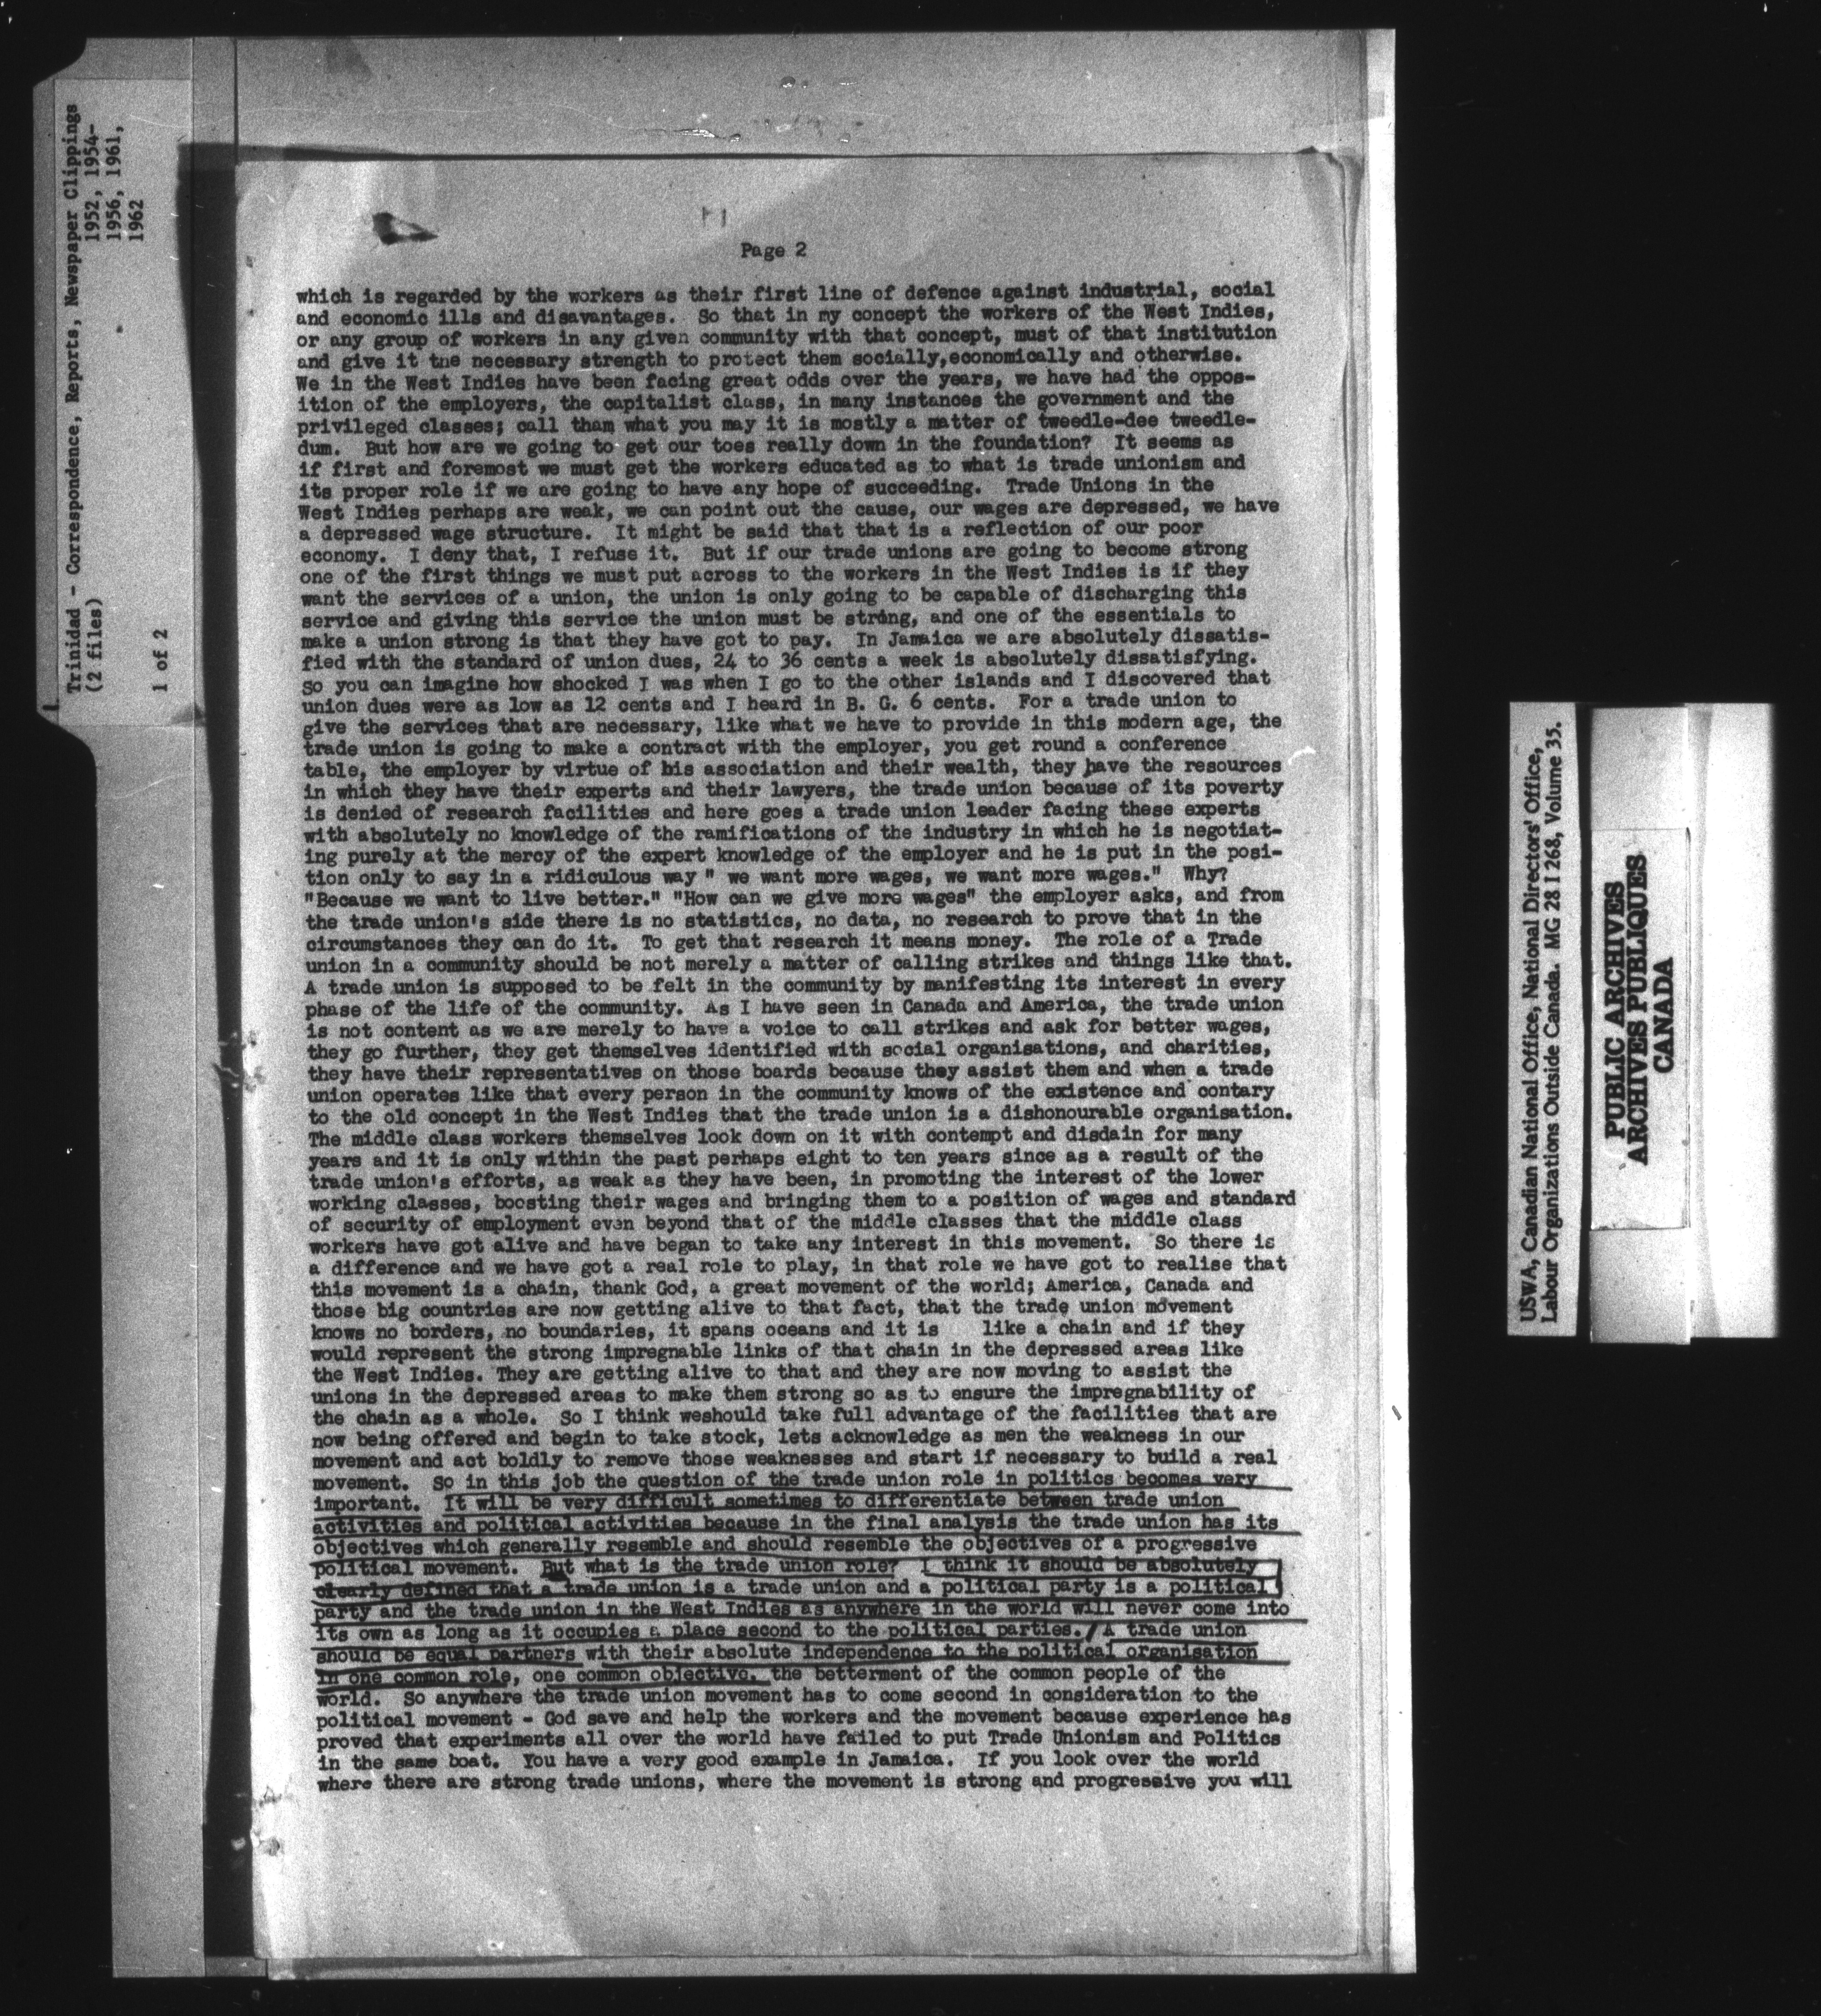 Trinidad - Correspondence, Reports, Newspaper Clippings
(2 files) 1952, 1954-
1956, 1961,
1 of 2 1962
Page 2
which is regarded by the workers as their first line of defence against industrial, social
and economic ills and disavantages. So that in my concept the workers of the West Indies,
or any group of workers in any given community with that concept, must of that institution
and give it the necessary strength to protect them socially,economically and otherwise.
We in the West Indies have been facing great odds over the years, we have had the oppos-
ition of the employers, the capitalist class, in many instances the government and the
privileged classes; call tham what you may it is mostly a matter of tweedle-dee tweedle-
dum. But how are we going to get our toes really down in the foundation? It seems as
if first and foremost we must get the workers educated as to what is trade unionism and
its proper role if we are going to have any hope of succeeding. Trade Unions in the
West Indies perhaps are weak, we can point out the cause, our wages are depressed, we have
a depressed wage structure. It might be said that that is a reflection of our poor
economy. I deny that, I refuse it. But if our trade unions are going to become strong
one of the first things we must put across to the workers in the West Indies is if they
want the services of a union, the union is only going to be capable of discharging this
service and giving this service the union must be strong, and one of the essentials to
make a union strong is that they have got to pay. In Jamaica we are absolutely dissatis-
fied with the standard of union dues, 24 to 36 cents a week is absolutely dissatisfying.
So you can imagine how shocked I was when I go to the other islands and I discovered that
union dues were as low as 12 cents and I heard in B. G. 6 cents. For a trade union to
give the services that are necessary, like what we have to provide in this modern age, the
trade union is going to make a contract with the employer, you get round a conference
table, the employer by virtue of his association and their wealth, they have the resources
in which they have their experts and their lawyers, the trade union because of its poverty
is denied of research facilities and here goes a trade union leader facing these experts
with absolutely no knowledge of the ramifications of the industry in which he is negotiat-
ing purely at the mercy of the expert knowledge of the employer and he is put in the posi-
tion only to say in a ridiculous way " we want more wages, we want more wages." Why?
"Because we want to live better." "How can we give more wages" the employer asks, and from
the trade union's side there is no statistics, no data, no research to prove that in the
circumstances they can do it. To get that research it means money. The role of a Trade
union in a community should be not merely a matter of calling strikes and things like that.
A trade union is supposed to be felt in the community by manifesting its interest in every
phase of the life of the community. As I have seen in Canada and America, the trade union
is not content as we are merely to have a voice to call strikes and ask for better wages,
they go further, they get themselves identified with social organisations, and charities,
they have their representatives on those boards because they assist them and when a trade
union operates like that every person in the community knows of the existence and contary
to the old concept in the West Indies that the trade union is a dishonourable organisation.
The middle class workers themselves look down on it with contempt and disdain for many
years and it is only within the past perhaps eight to ten years since as a result of the
trade union's efforts, as weak as they have been, in promoting the interest of the lower
working classes, boosting their wages and bringing them to a position of wages and standard
of security of employment even beyond that of the middle classes that the middle class
workers have got alive and have began to take any interest in this movement. So there is
a difference and we have got a real role to play, in that role we have got to realise that
this movement is a chain, thank God, a great movement of the world; America, Canada and
those big countries are now getting alive to that fact, that the trade union movement
knows no borders, no boundaries, it spans oceans and it is like a chain and if they
would represent the strong impregnable links of that chain in the depressed areas like
the West Indies. They are getting alive to that and they are now moving to assist the
unions in the depressed areas to make them strong so as to ensure the impregnability of
the chain as a whole. So I think weshould take full advantage of the facilities that are
now being offered and begin to take stock, lets acknowledge as men the weakness in our
movement and act boldly to remove those weaknesses and start if necessary to build a real
movement. So in this job the question of the trade union role in politics becomes very
important. It will be very difficult sometimes to differentiate between trade union
activities and political activities because in the final analysis the trade union has its
objectives which generally resemble and should resemble the objectives of a progressive
political movement. But what is the trade union role? I think it should be absolutely
clearly defined that a trade union is a trade union and a political party is a political
party and the trade union in the West Indies as anywhere in the world will never come into
its own as long as it occupies a place second to the political parties. A trade union
should be equal partners with their absolute independence to the political organisation
in one common role, one common objective. the betterment of the common people of the
world. So anywhere the trade union movement has to come second in consideration to the
political movement - God save and help the workers and the movement because experience has
proved that experiments all over the world have failed to put Trade Unionism and Politics
in the same boat. You have a very good example in Jamaica. If you look over the world
where there are strong trade unions, where the movement is strong and progressive you will
USWA, Canadian National Office, National Directors' Office,
Labour Organizations Outside Canada. MG 28 I 268, Volume 35.
PUBLIC ARCHIVES
ARCHIVES PUBLIQUES
CANADA